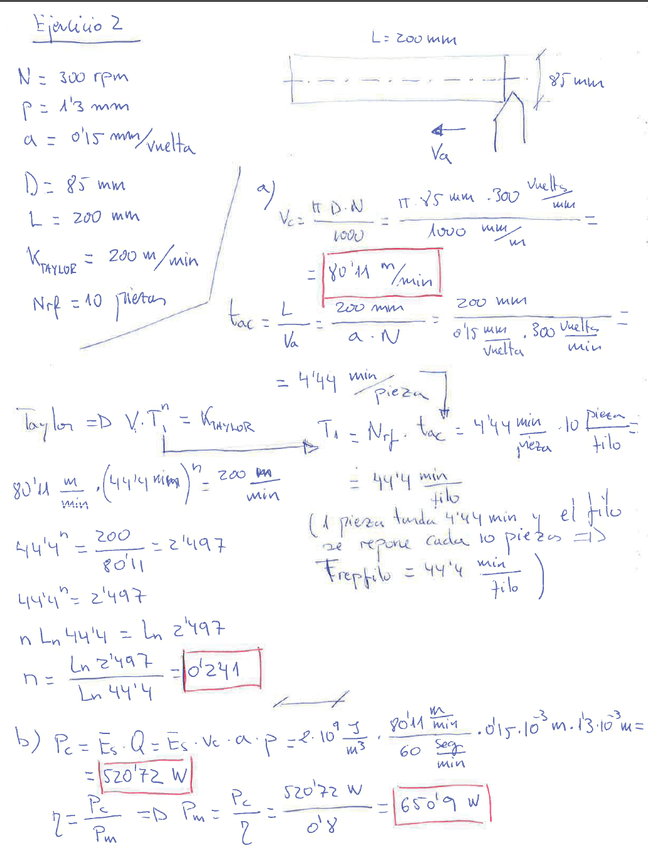 Ejercicio 2
L = 200 mm
85 mm
Va
N = 300 rpm
p = 1'3 mm
a = 0'15 mm/vuelta
D = 85 mm
L = 200 mm
K_TAYLOR = 200 m/min
Nrf = 10 piezas
a) Vc = π D·N / 1000 = π · 85 mm · 300 vueltas/min / 1000 mm/m =
= 80'11 m/min
tac = L / Va = 200 mm / a · N = 200 mm / 0'15 mm/vuelta · 300 vuelta/min =
= 4'44 min/pieza
Taylor => V·T₁ⁿ = K_TAYLOR
T₁ = Nrf · tac = 4'44 min/pieza · 10 pieza/filo =
= 44'4 min/filo
(1 pieza tarda 4'44 min y el filo
se repone cada 10 piezas =>
Frepfilo = 44'4 min/filo)
80'11 m/min · (44'4 min)ⁿ = 200 m/min
44'4ⁿ = 200 / 80'11 = 2'497
44'4ⁿ = 2'497
n Ln 44'4 = Ln 2'497
n = Ln 2'497 / Ln 44'4 = 0'241
b) Pc = Es · Q = Es · vc · a · p = 2·10⁹ J/m³ · 80'11 m/min / 60 seg/min · 0'15·10⁻³ m · 1'3·10⁻³ m =
= 520'72 W
η = Pc / Pm => Pm = Pc / η = 520'72 W / 0'8 = 650'9 W